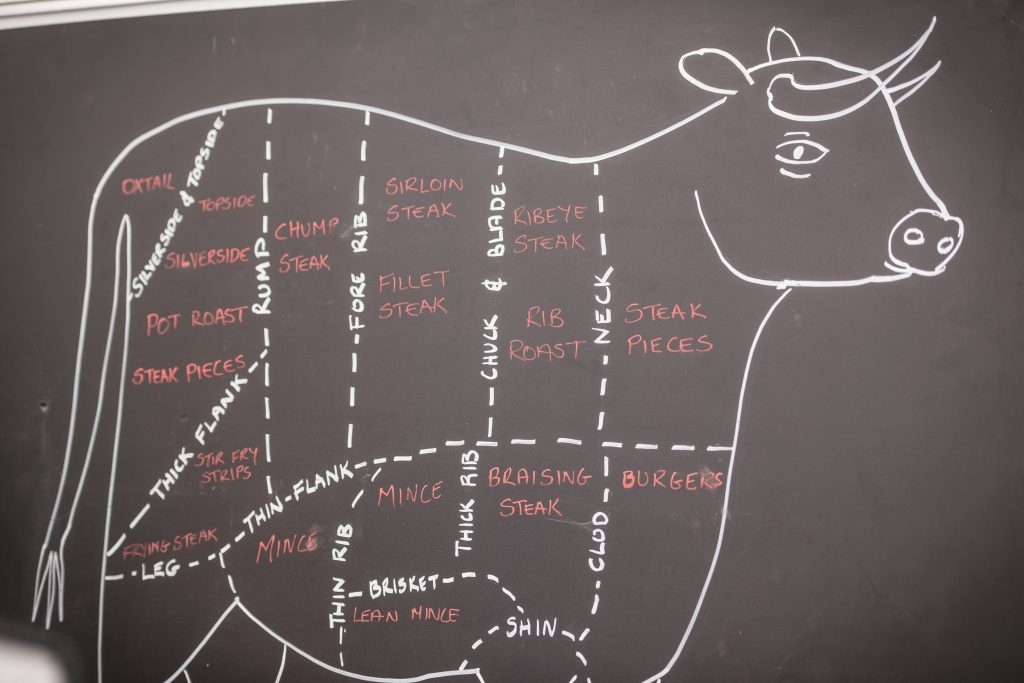 OXTAIL
SILVERSIDE & TOPSIDE
TOPSIDE
SILVERSIDE
POT ROAST
STEAK PIECES
THICK FLANK
STIR FRY
STRIPS
FRYING STEAK
LEG
RUMP
CHUMP
STEAK
THIN-FLANK
MINCE
FORE RIB
SIRLOIN
STEAK
FILLET
STEAK
MINCE
THIN RIB
BRISKET
LEAN MINCE
CHUCK & BLADE
RIBEYE
STEAK
RIB
ROAST
THICK RIB
BRAISING
STEAK
SHIN
NECK
STEAK
PIECES
CLOD
BURGERS